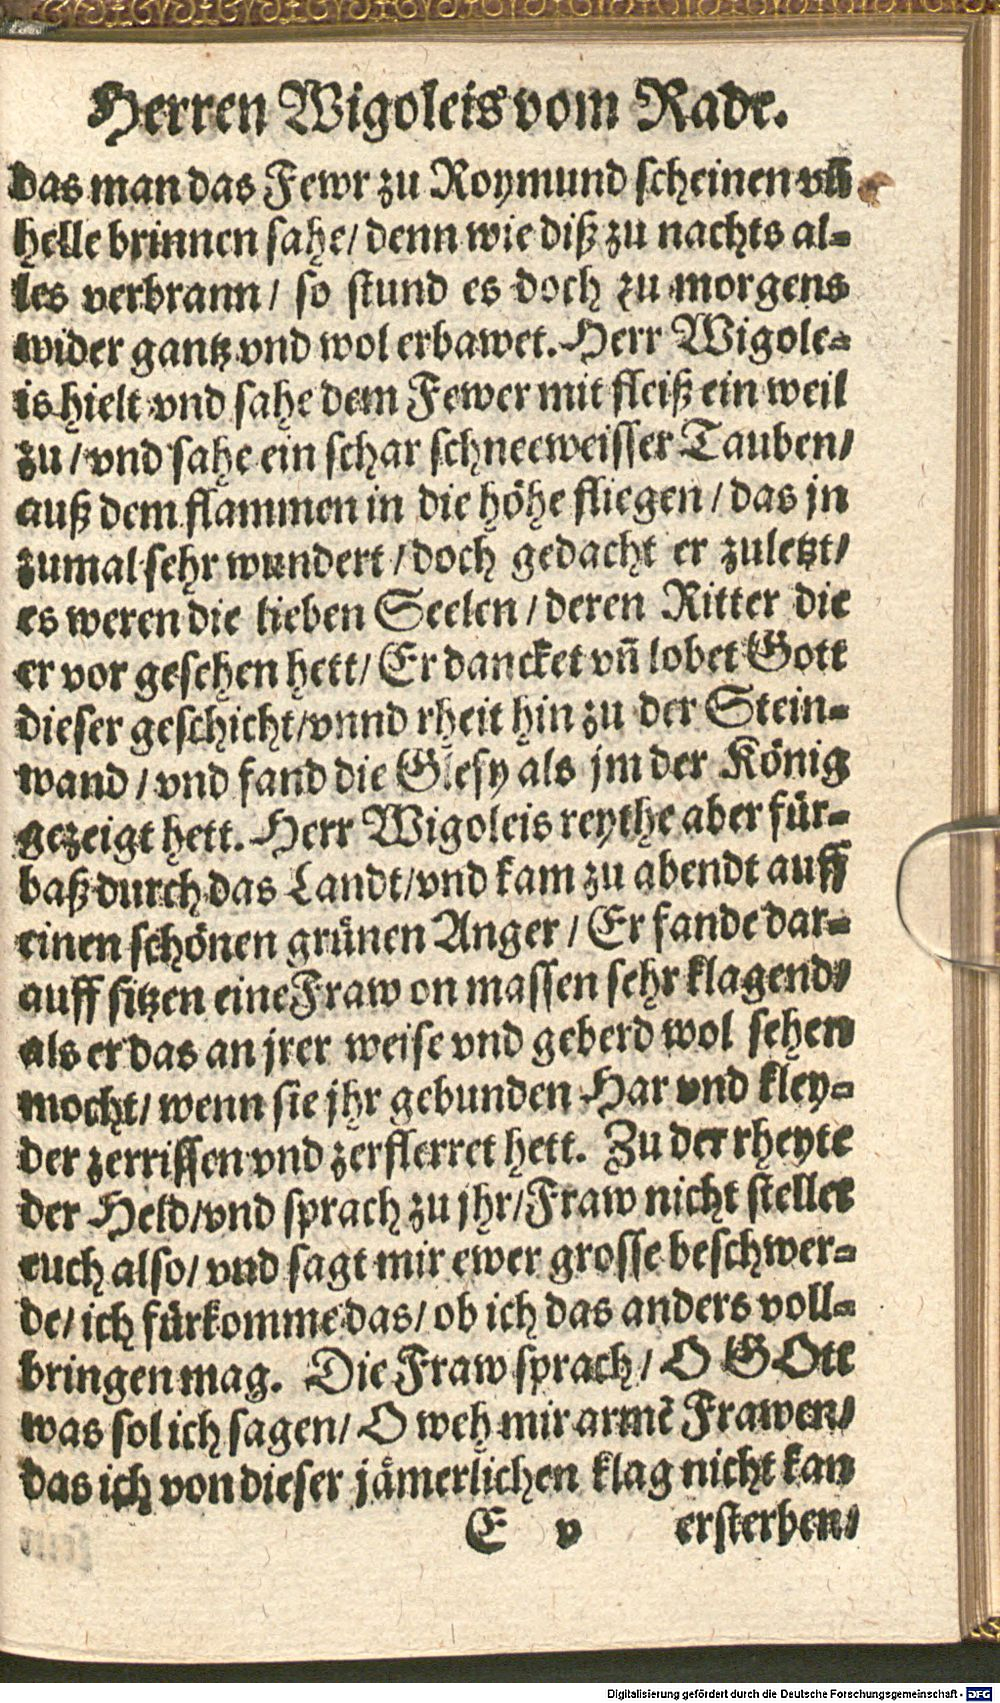 Herren Wigoleis vom Rade.
das man das Fewr zu Roymund scheinen vñ
helle brinnen sahe/ denn wie diß zu nachts al-
les verbrann/ so stund es doch zu morgens
wider gantz vnd wol erbawet. Herr Wigole-
is hielt vnd sahe dem Fewer mit fleiß ein weil
zu/ vnd sahe ein schar schneeweisser Tauben/
auß dem flammen in die höhe fliegen/ das jn
zumal sehr wundert/ doch gedacht er zuletzt/
es weren die lieben Seelen/ deren Ritter die
er vor gesehen hett/ Er dancket vñ lobet Gott
dieser geschicht/ vnnd rheit hin zu der Stein-
wand/ vnd fand die Glefy als jm der König
gezeigt hett. Herr Wigoleis reythe aber für-
baß durch das Landt/ vnd kam zu abendt auff
einen schönen grünen Anger/ Er fande dar-
auff sitzen eine Fraw on massen sehr klagend/
als er das an jrer weise vnd geberd wol sehen
mocht/ wenn sie jhr gebunden Har vnd kley-
der zerrissen vnd zerflerret hett. Zu der rheyte
der Held/ vnd sprach zu jhr/ Fraw nicht stellet
euch also/ vnd sagt mir ewer grosse beschwer-
de/ ich fürkomme das/ ob ich das anders voll-
bringen mag. Die Fraw sprach/ O GOtt
was sol ich sagen/ O weh mir armẽ Frawen/
das ich von dieser jämerlichen klag nicht kan
E v ersterben/
Digitalisierung gefördert durch die Deutsche Forschungsgemeinschaft - DFG